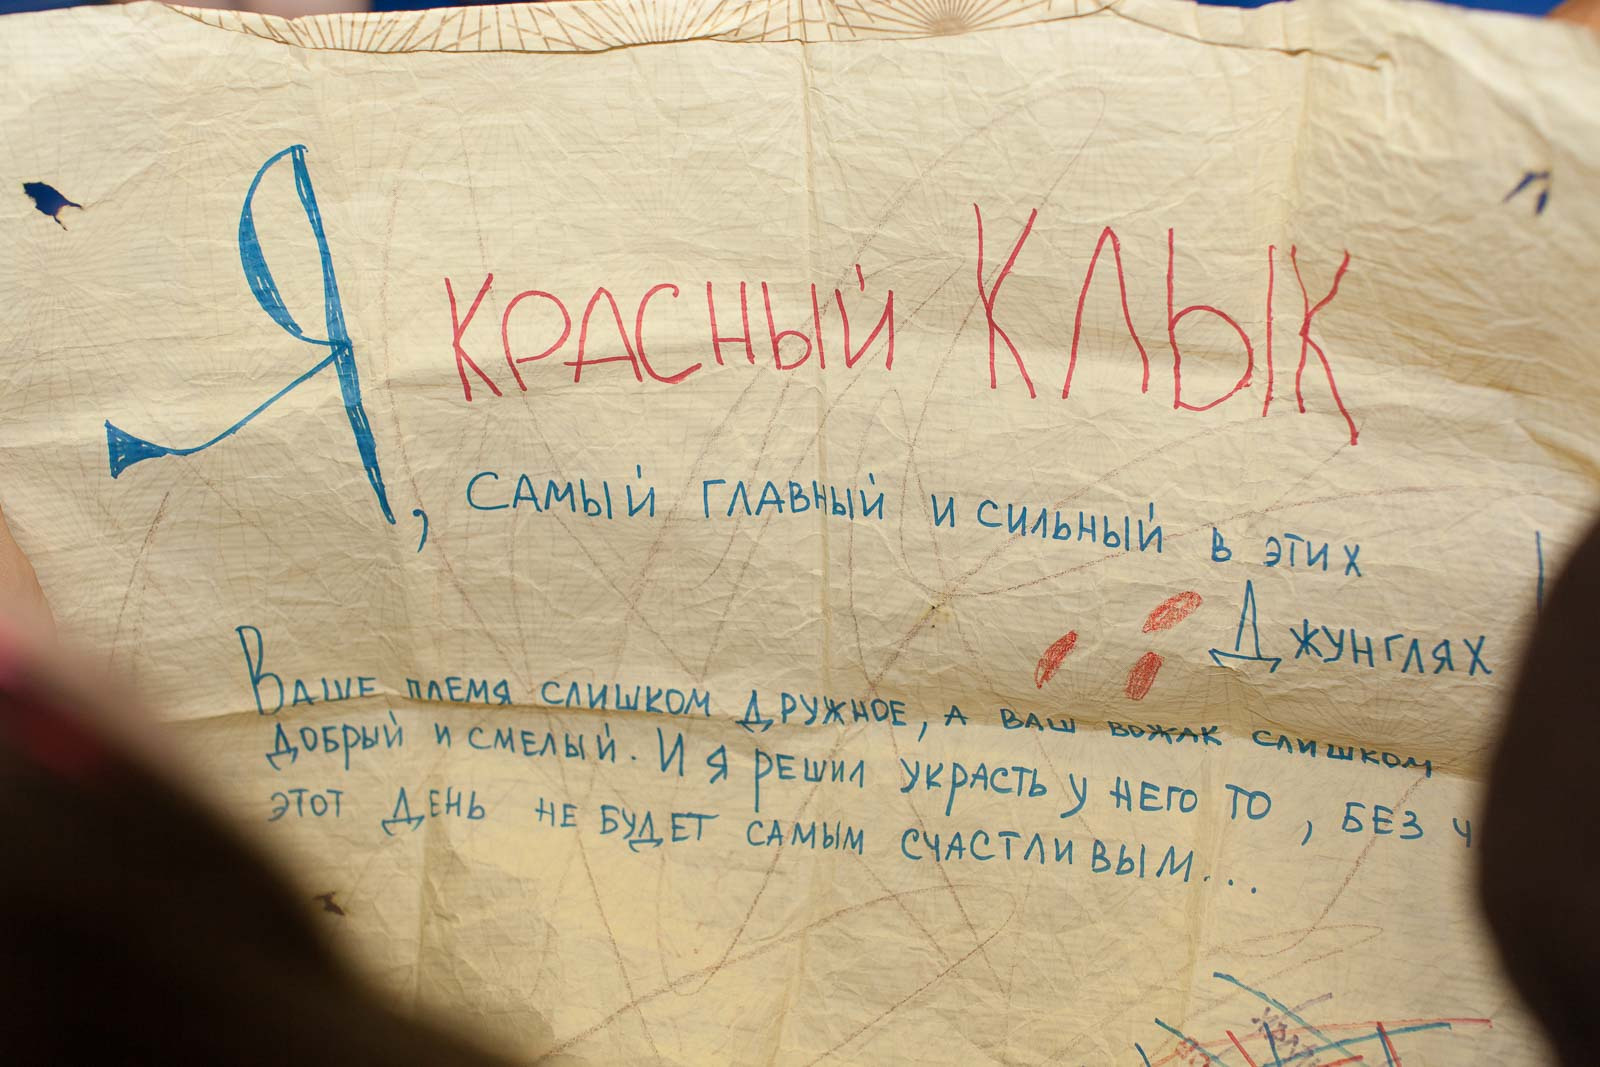 Я КРАСНЫЙ КЛЫК
, САМЫЙ ГЛАВНЫЙ И СИЛЬНЫЙ В ЭТИХ
ДЖУНГЛЯХ
ВАШЕ ПЛЕМЯ СЛИШКОМ ДРУЖНОЕ, А ВАШ ВОЖАК СЛИШКОМ
ДОБРЫЙ И СМЕЛЫЙ. И Я РЕШИЛ УКРАСТЬ У НЕГО ТО , БЕЗ Ч
ЭТОТ ДЕНЬ НЕ БУДЕТ САМЫМ СЧАСТЛИВЫМ...